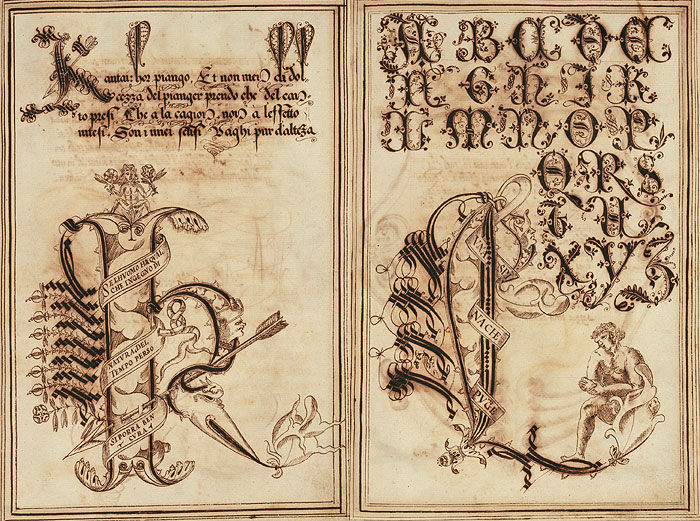 Kantai: hor piango, Et non men di dol
cezza del pianger prendo che del can
to presi. Che a la cagion, non a leffetto
intesi. Son i miei sensi Vaghi pur daltezza
HVOMO HA QVAL
CHE INGEGNO DI
NATVRA, E DEL
TEMPO PERSO
SI PORRA
CVRAR
A B C D E
F G H I K
L M N O P
Q R S
T U
X Y Z
NACIE